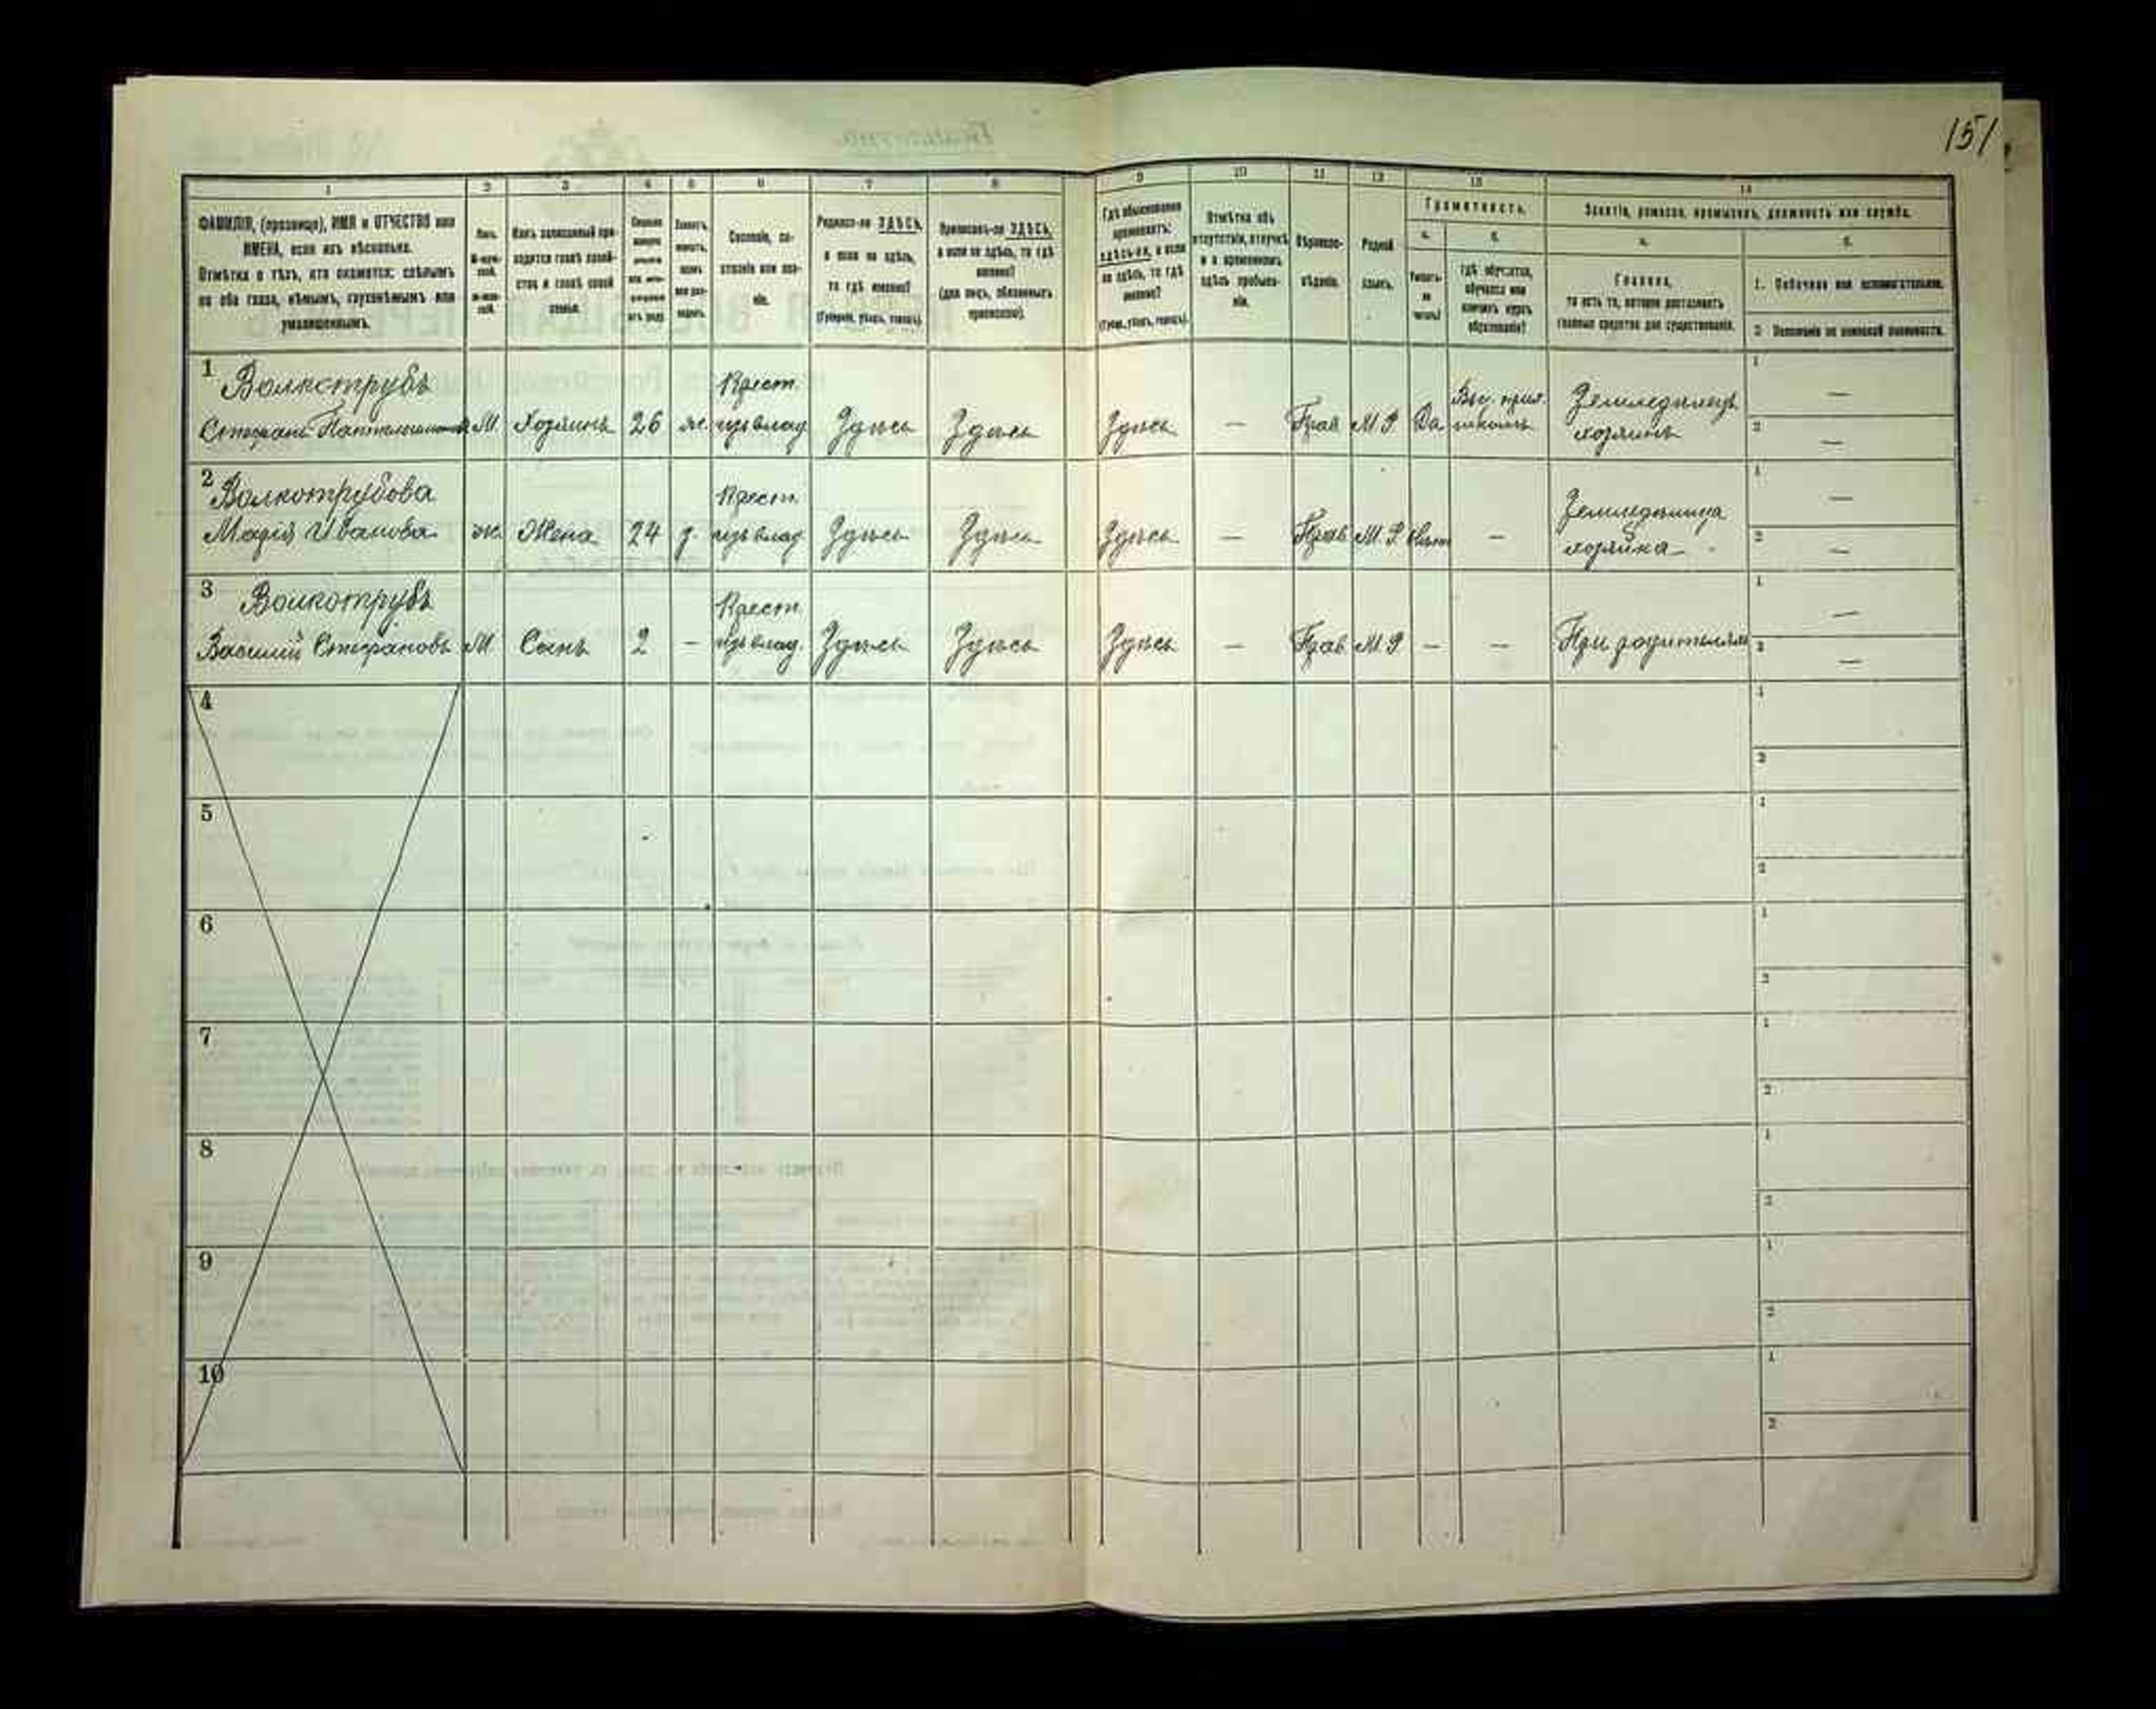 151
1 2 3 4 5 6 7 8 9 10 11 12 13 14
ФАМИЛІЯ, (прозвище), ИМЯ и ОТЧЕСТВО или
ИМЕНА, если ихъ нѣсколько.
Отмѣтка о тѣхъ, кто окажется: слѣпымъ
на оба глаза, нѣмымъ, глухонѣмымъ или
умалишеннымъ.
Полъ.
Какъ записанный при-
ходится главѣ хозяй-
ства и главѣ своей
семьи.
Сословіе, со-
стояніе или зва-
ніе.
Родился-ли ЗДѢСЬ,
а если не здѣсь,
то гдѣ именно?
(Губернія, уѣздъ, городъ).
Приписанъ-ли ЗДѢСЬ,
а если не здѣсь, то гдѣ
именно?
(для лицъ, обязанныхъ
припискою).
Гдѣ обыкновенно
проживаетъ:
здѣсь-ли, а если
не здѣсь, то гдѣ
именно?
(Губер., уѣздъ, городъ).
Отмѣтка объ
отсутствіи, отлучкѣ
и о временномъ
здѣсь пребыва-
ніи.
Вѣроиспо-
вѣданіе.
Родной
языкъ.
Грамотность.
а. б.
Умѣетъ-
ли
читать?
Гдѣ обучается,
обучался или
кончилъ курсъ
образованія?
Занятіе, ремесло, промыселъ, должность или служба.
а. б.
Главное,
то есть то, которое доставляетъ
главныя средства для существованія.
1. Побочное или вспомогательное.
2. Положеніе по воинской повинности.
1 Волкотрубъ Крест. Въ. прих. Земледѣлецъ 1 —
Стефанъ Пантелеимоновъ М Хозяинъ 26 ж. изъ влад Здѣсь Здѣсь Здѣсь — Прав М Р Да школѣ хозяинъ 2 —
2 Волкотрубова Крест. Земледѣлица 1 —
Марія Иванова ж. Жена 24 з. изъ влад Здѣсь Здѣсь Здѣсь — Прав М Р Нѣтъ — хозяйка 2 —
3 Волкотрубъ Крест. 1 —
Василий Стефановъ М Сынъ 2 — изъ влад. Здѣсь Здѣсь Здѣсь — Прав М Р — — При родителяхъ 2 —
4 1
2
5 1
2
6 1
2
7 1
2
8 1
2
9 1
2
10 1
2